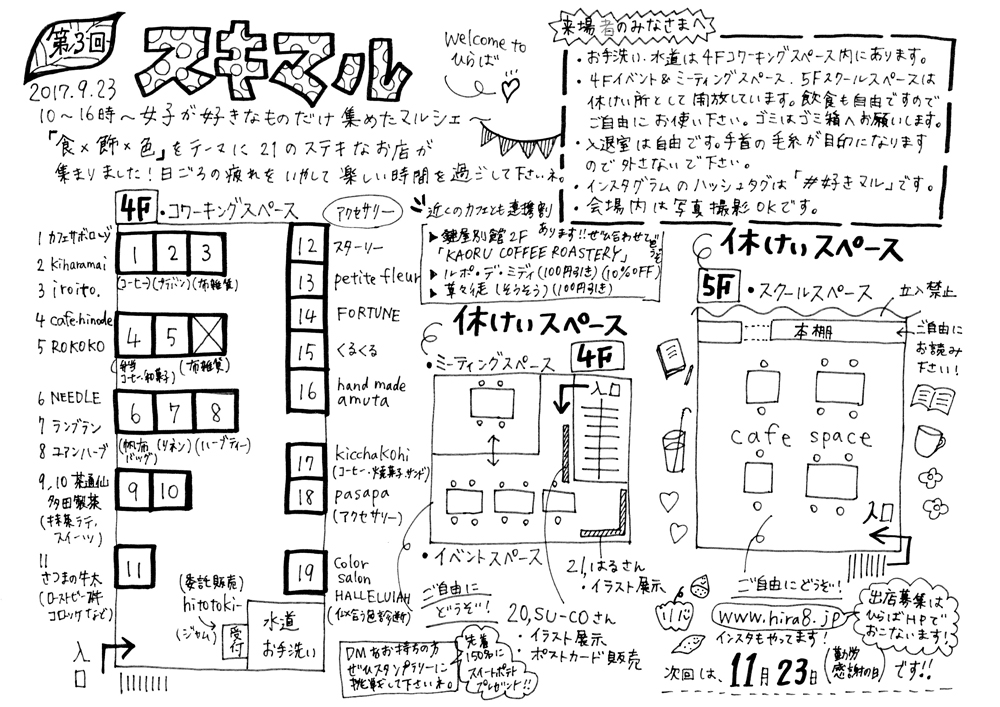 第3回
スキマル
Welcome to
ひらば
2017.9.23
10～16時～女子が好きなものだけ集めたマルシェ～
「食×飾×色」をテーマに21のステキなお店が
集まりました！日ごろの疲れをいやして楽しい時間を過ごして下さいね。
来場者のみなさまへ
・お手洗い、水道は4Fコワーキングスペース内にあります。
・4Fイベント&ミーティングスペース、5Fスクールスペースは
休けい所として開放しています。飲食も自由ですので
ご自由にお使い下さい。ゴミはゴミ箱へお願いします。
・入退室は自由です。手首の毛糸が目印になります
ので外さないで下さい。
・インスタグラムのハッシュタグは「#好きマル」です。
・会場内は写真撮影OKです。
4F
・コワーキングスペース
1 カフェサボローゾ
2 Kiharamai
3 iroito.
1
2
3
(コーヒー)
(布雑貨)
4 cafe・hinode
5 ROKOKO
4
5
(弁当
コーヒー、和菓子)
(布雑貨)
6 NEEDLE
7 ラングラン
8 ユアンハーブ
6
7
8
(帆布
バッグ)
(リネン)
(ハーブティー)
9、10 茶通仙
多田製茶
(抹茶ラテ、
スイーツ)
9
10
11
さつまの牛太
(ローストビーフ丼
コロッケなど)
11
入口
(委託販売)
hitotoki-
(ジャム)
受付
水道
お手洗い
アクセサリー
12
スターリー
13
petite fleur
14
FORTUNE
15
くるくる
16
hand made
amuta
17
kicchakohi
(コーヒー・焼菓子、サンド)
18
pasapa
(アクセサリー)
19
Color
salon
HALLELUIAH
(似合う色診断)
近くのカフェとも連携割
あります!!ぜひ合わせてどうぞ
▶鍵屋別館2F
「KAORU COFFEE ROASTERY」
(10%OFF)
▶ルポ・デ・ミディ(100円引き)
▶草々徒(そうそう)(100円引き)
休けいスペース
4F
・ミーティングスペース
入口
・イベントスペース
ご自由に
どうぞ！
20、SU-COさん
・イラスト展示
・ポストカード販売
21、はるさん
・イラスト展示
DMをお持ちの方
ぜひスタンプラリーに
挑戦をして下さいね。
先着
150名に
スイートポテト
プレゼント!!
休けいスペース
5F
・スクールスペース
立入禁止
本棚
ご自由に
お読み
下さい！
cafe space
入口
ご自由にどうぞ！
www.hira8.jp
インスタもやってます！
出店募集は
ひらばHPで
おこないます！
次回は、11月23日(勤労感謝の日)です!!